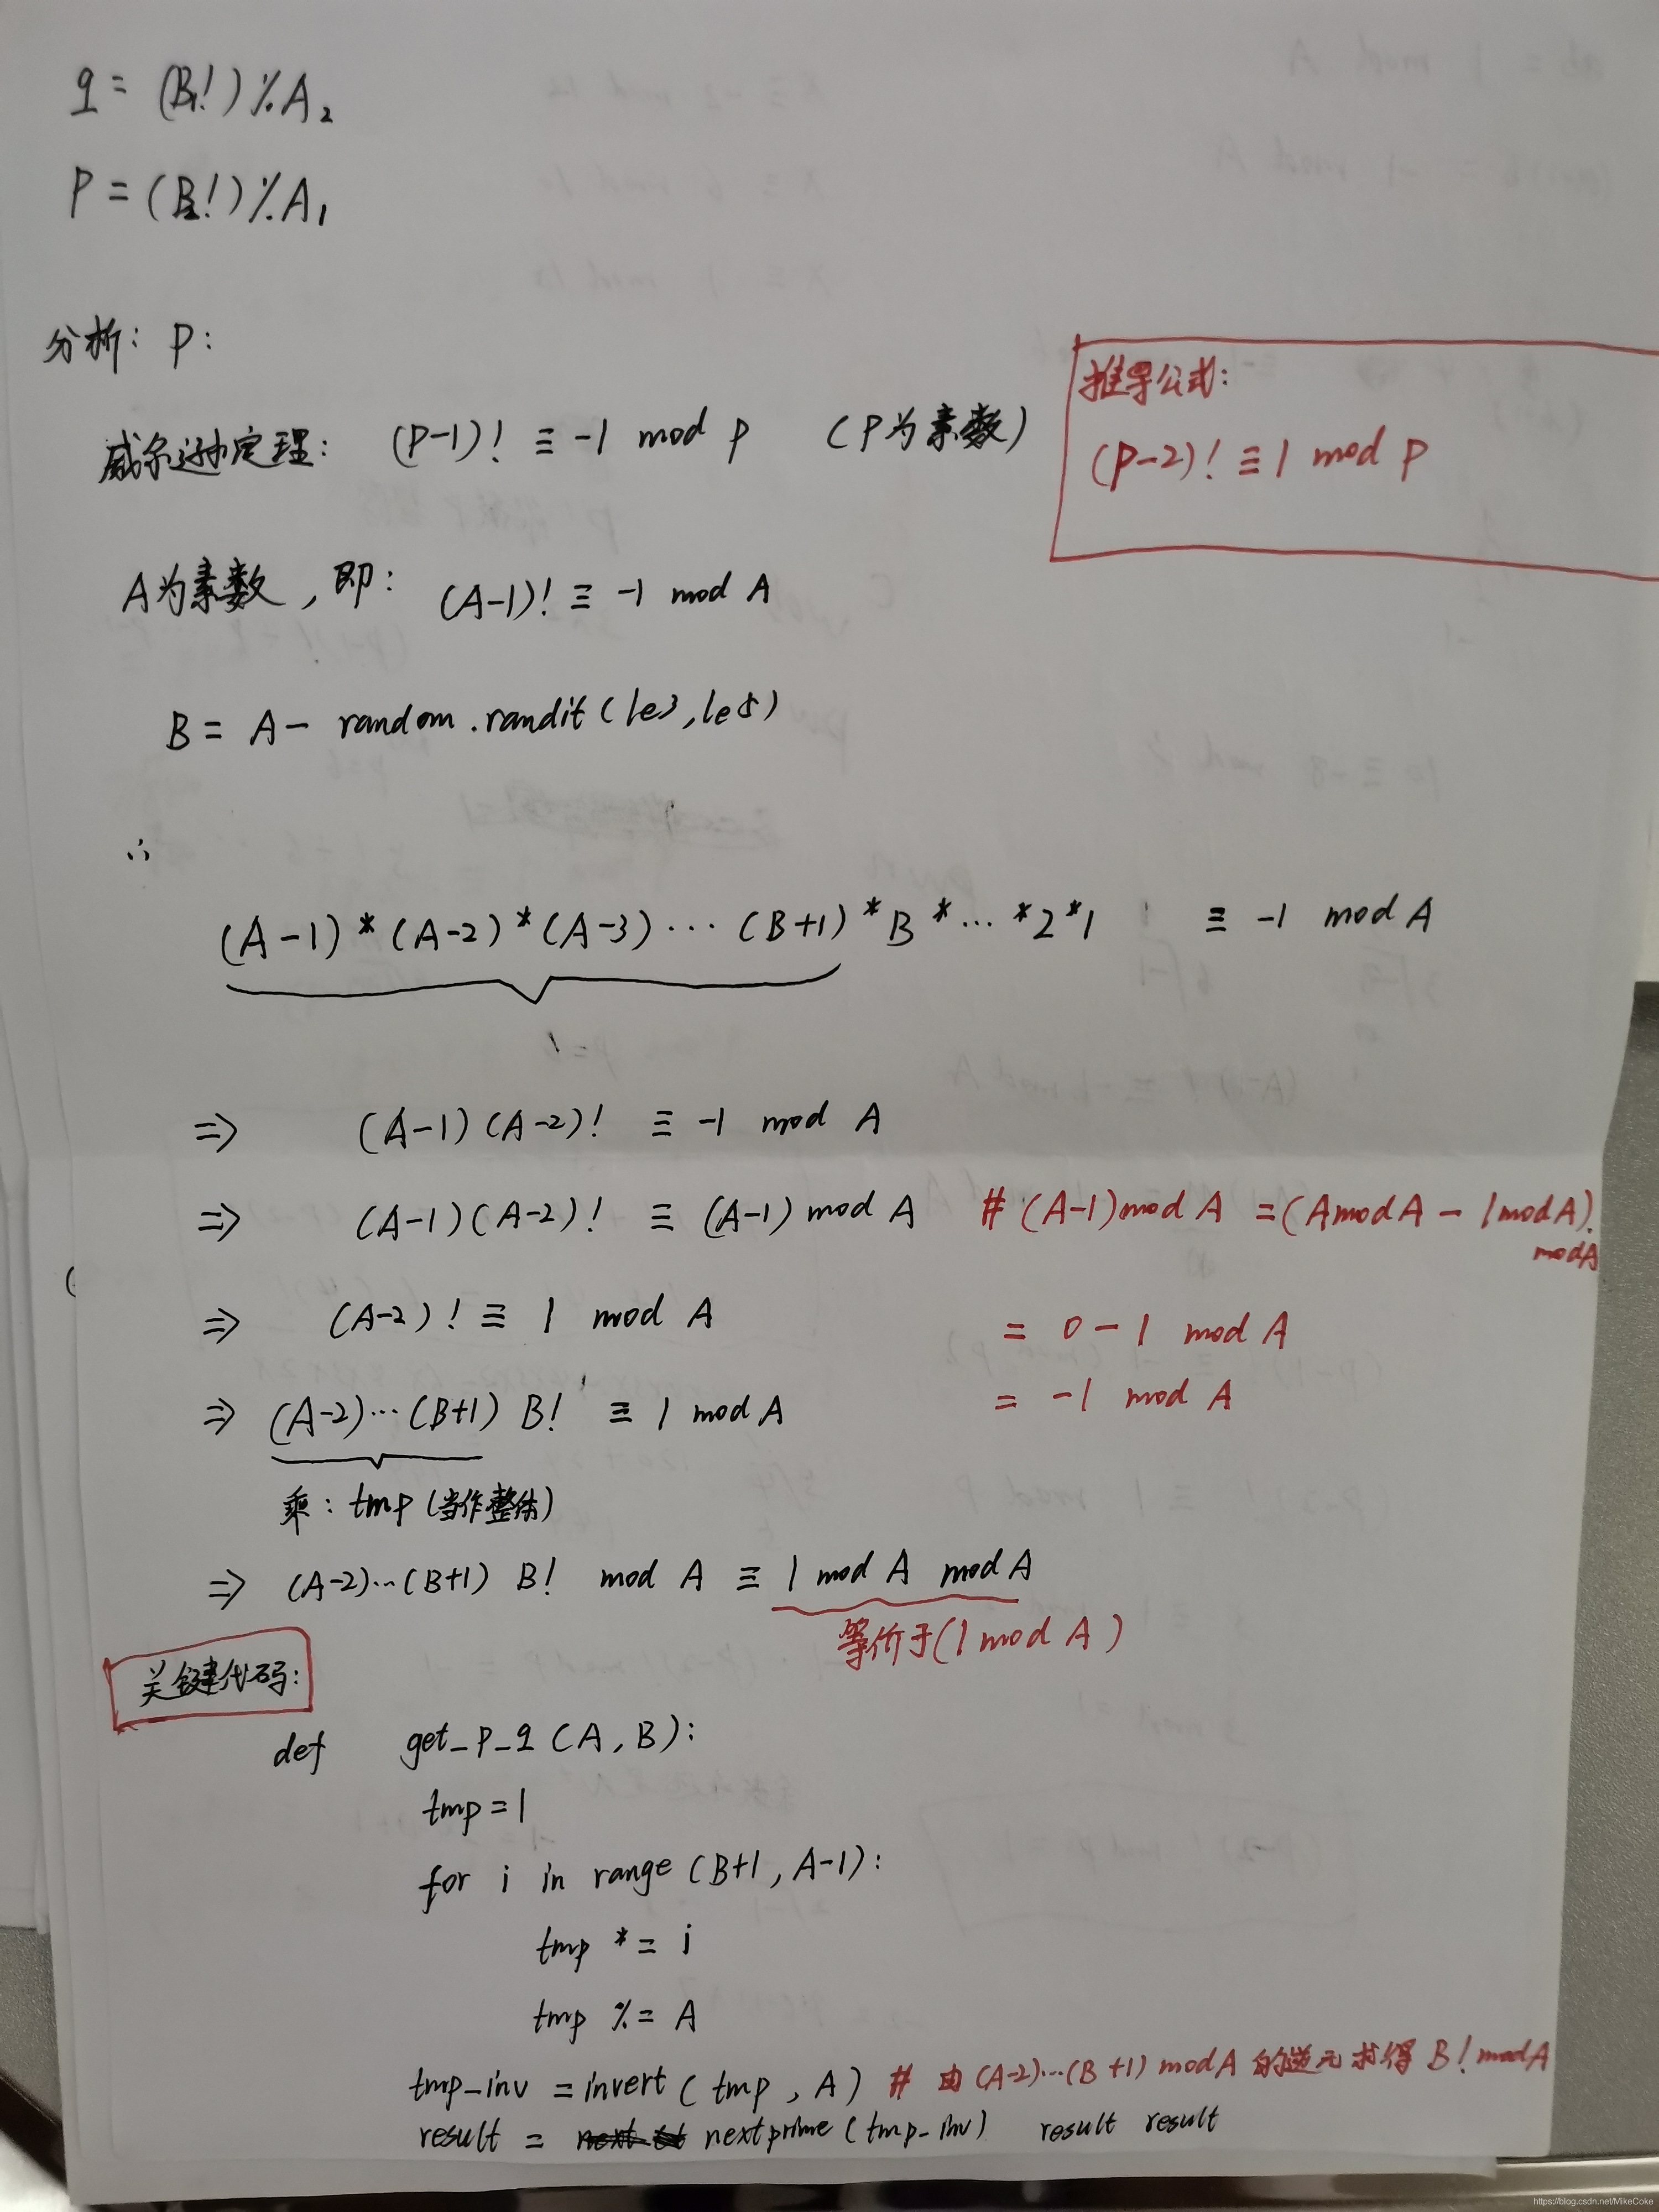 q = (B₁!) % A₂
P = (B₂!) % A₁
分析: P:
推导公式:
(P-2)! ≡ 1 mod P
威尔逊定理: (P-1)! ≡ -1 mod p (P为素数)
A为素数, 即: (A-1)! ≡ -1 mod A
B = A - random.randit(1e3,1e5)
∴
(A-1)*(A-2)*(A-3)...(B+1)*B*...*2*1 ≡ -1 mod A
⇒ (A-1)(A-2)! ≡ -1 mod A
⇒ (A-1)(A-2)! ≡ (A-1) mod A # (A-1)mod A = (AmodA - 1modA).
modA
⇒ (A-2)! ≡ 1 mod A = 0-1 mod A
= -1 mod A
⇒ (A-2)...(B+1) B! ≡ 1 mod A
乘: tmp (当作整体)
⇒ (A-2)...(B+1) B! mod A ≡ 1 mod A mod A
等价于(1 mod A)
关键代码:
def get_p_q (A, B):
tmp = 1
for i in range (B+1, A-1):
tmp *= i
tmp %= A
tmp_inv = invert( tmp, A) # 由 (A-2)...(B+1) modA 的逆元求得 B! modA
result = nextprime(tmp_inv) result result
https://blog.csdn.net/MikeCoke